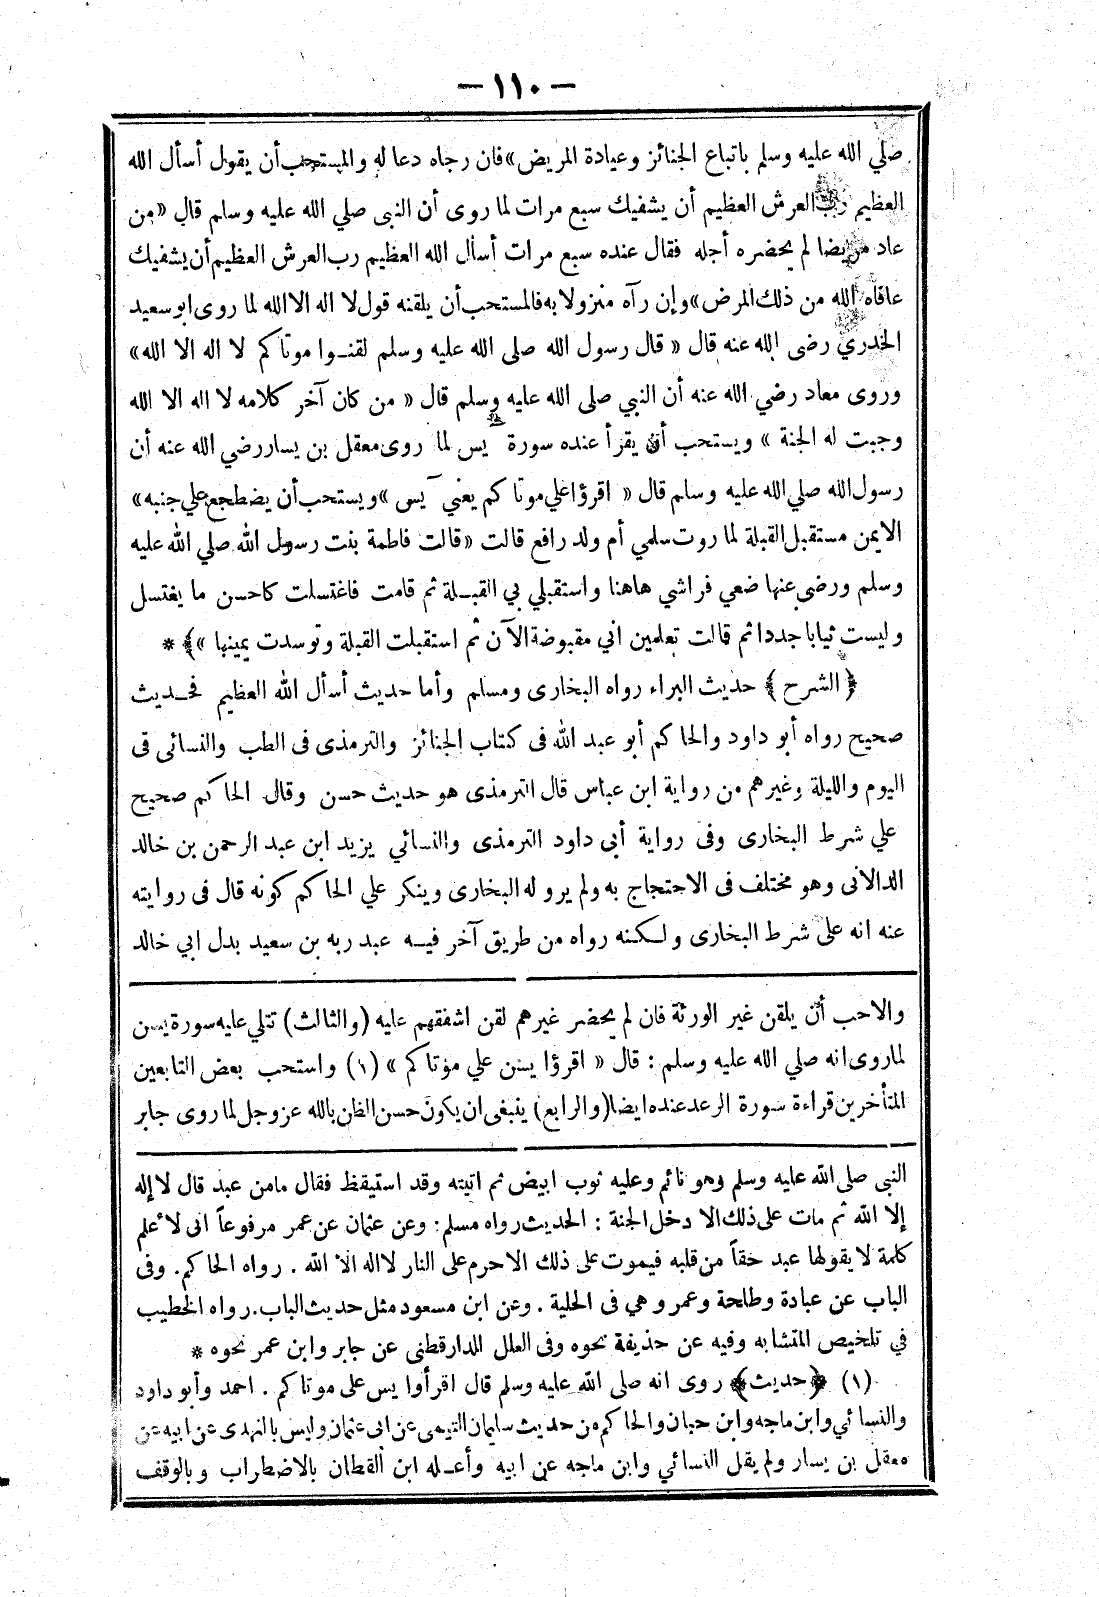 — ١١٠ —
صلي الله عليه وسلم باتباع الجنائز وعيادة المريض» فان رجاه دعا له والمستحب أن يقول أسأل الله
العظيم رب العرش العظيم أن يشفيك سبع مرات لما روى أن النبى صلي الله عليه وسلم قال «من
عاد مريضا لم يحضره أجله فقال عنده سبع مرات أسأل الله العظيم رب العرش العظيم أن يشفيك
عافاه الله من ذلك المرض» وإن رآه منزولا به فالمستحب أن يلقنه قول لا اله الا الله لما روى ابو سعيد
الخدري رضى الله عنه قال «قال رسول الله صلى الله عليه وسلم لقنـوا موتاكم لا اله الا الله»
وروى معاد رضي الله عنه أن النبي صلى الله عليه وسلم قال « من كان آخر كلامه لا اله الا الله
وجبت له الجنة » ويستحب أن يقرأ عنده سورة يس لما روى معقل بن يسار رضي الله عنه أن
رسول الله صلي الله عليه وسلم قال « اقرؤا علي موتاكم يعني يس » ويستحب أن يضطجع علي جنبه»
الايمن مستقبل القبلة لما روت سلمي أم ولد رافع قالت «قالت فاطمة بنت رسول الله صلي الله عليه
وسلم ورضى عنها ضعي فراشي هاهنا واستقبلي بي القبـلة ثم قامت فاغتسلت كاحسن ما يغتسل
وليست ثيابا جددا ثم قالت تعلمين اني مقبوضة الآن ثم استقبلت القبلة وتوسدت يمينها »﴾ *
﴿ الشرح ﴾ حديث البراء رواه البخارى ومسلم وأما حديث أسأل الله العظيم فحـديث
صحيح رواه أبو داود والحاكم أبو عبد الله فى كتاب الجنائز والترمذى فى الطب والنسائى فى
اليوم والليلة وغيرهم من رواية ابن عباس قال الترمذى هو حديث حسن وقال الحاكم صحيح
علي شرط البخارى وفى رواية أبى داود الترمذى والنسائي يزيد ابن عبد الرحمن بن خالد
الدالانى وهو مختلف فى الاحتجاج به ولم يرو له البخارى وينكر علي الحاكم كونه قال فى روايته
عنه انه على شرط البخارى ولـكنه رواه من طريق آخر فيـه عبد ربه بن سعيد بدل ابي خالد
والاحب أن يلقن غير الورثة فان لم يحضر غيرهم لقن اشفقهم عليه (والثالث) تتلي عليه سورة يسن
لما روى انه صلي الله عليه وسلم : قال « اقرؤا يسن علي موتاكم » (١) واستحب بعض التابعين
المتأخرين قراءة سورة الرعد عنده ايضا (والرابع) ينبغى ان يكون حسن الظن بالله عز وجل لما روى جابر
النبى صلى الله عليه وسلم وهو نائم وعليه ثوب ابيض ثم اتيته وقد استيقظ فقال مامن عبد قال لا إله
إلا الله ثم مات على ذلك الا دخل الجنة : الحديث رواه مسلم : وعن عثمان عن عمر مرفوعاً انى لاعلم
كلمة لا يقولها عبد حقاً من قلبه فيموت على ذلك الاحرم على النار لا اله الا الله . رواه الحاكم. وفى
الباب عن عبادة وطلحة وعمر وهي فى الحلية . وعن ابن مسعود مثل حديث الباب. رواه الخطيب
في تلخيص المتشابه وفيه عن حذيفة نحوه وفى العلل للدارقطنى عن جابر وابن عمر نحوه *
(١) ﴿حديث﴾ روى انه صلى الله عليه وسلم قال اقرأوا يس على موتاكم . احمد وأبو داود
والنسائي وابن ماجه وابن حبان والحاكم من حديث سليمان التيمى عن ابى عثمان وليس بالنهدى عن ابيه عن
معقل بن يسار ولم يقل النسائي وابن ماجه عن ابيه وأعـله ابن القطان بالاضطراب وبالوقف